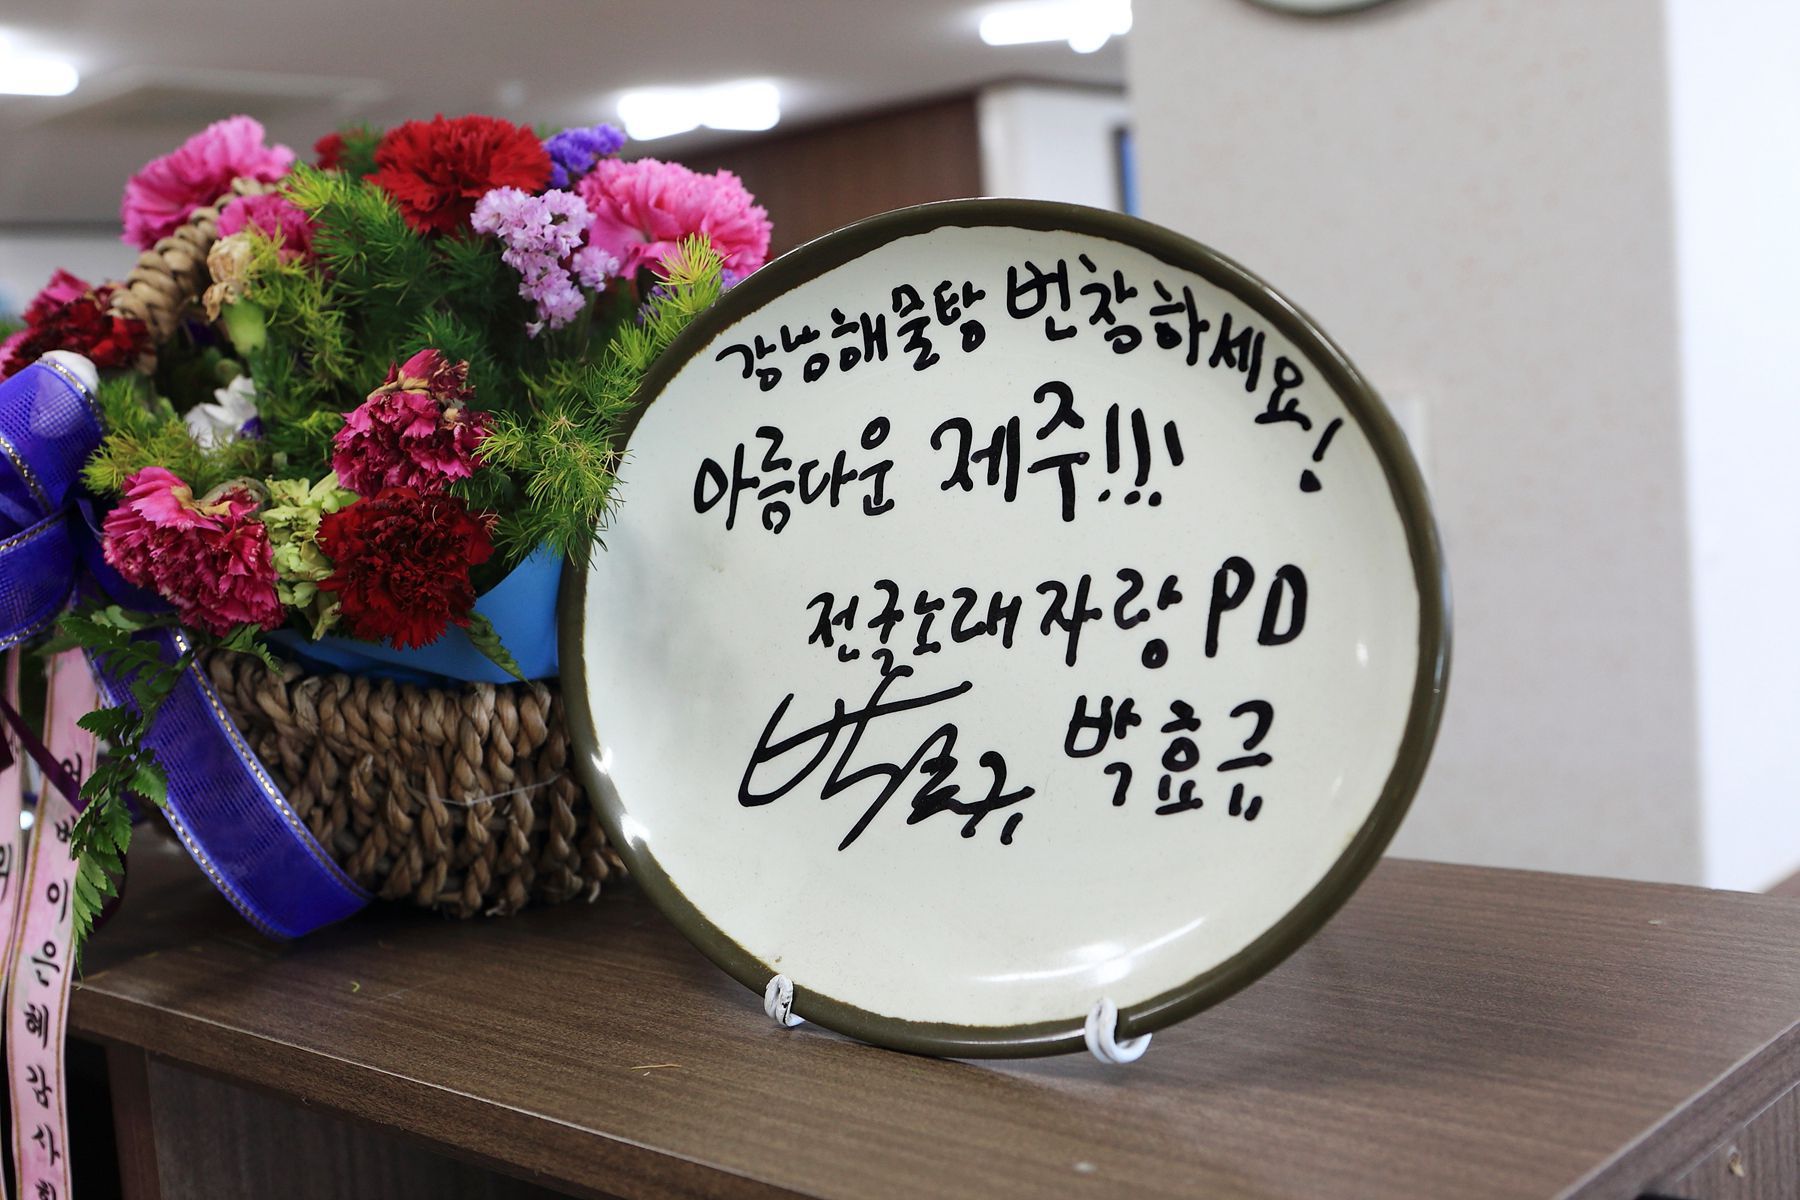 해물탕 번창하세요!
아름다운 제주!!!
전국노래자랑 PD
박효규 박효규
어버이은혜감사